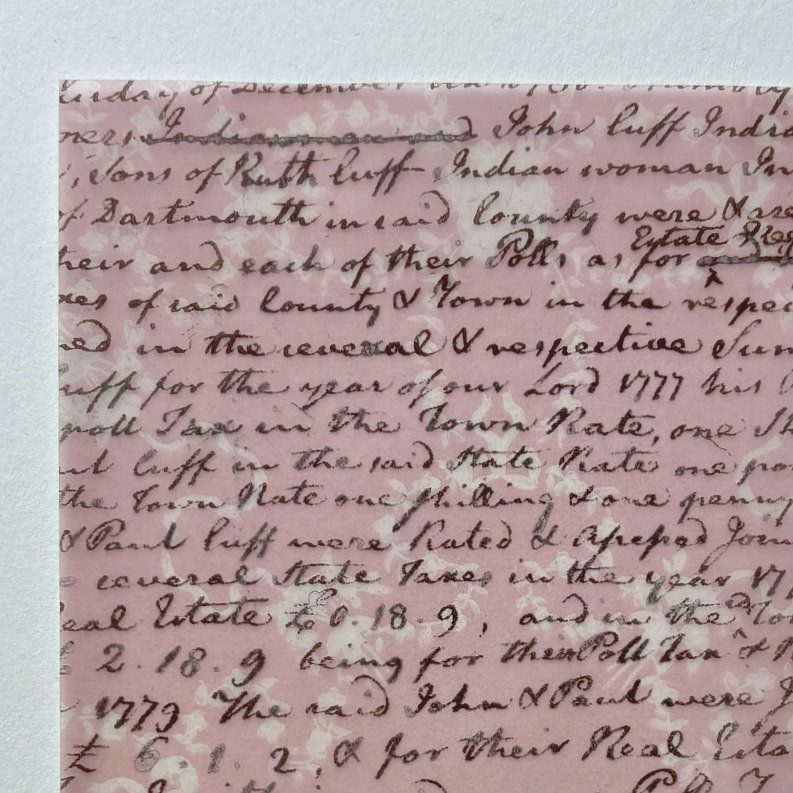 day of December
Indianmen and John Cuff India
, Sons of Ruth Cuff Indian woman In
of Dartmouth in said County were & are
Estate
heir and each of their Polls as for
xes of said County & Town in the respec
ed in the several & respective Sum
uff for the year of our Lord 1777 his
poll Tax in the Town Rate, one Sh
ul Cuff in the said State Rate one po
the Town Rate one shilling & one penny
& Paul Cuff were Rated & Assessed Join
several State Taxes in the year 17
Real Estate £0.18.9, and in the To
£ 2.18.9 being for their Poll Tax &
1779 The said John & Paul were J
£ 6.1.2, & for their Real Esta